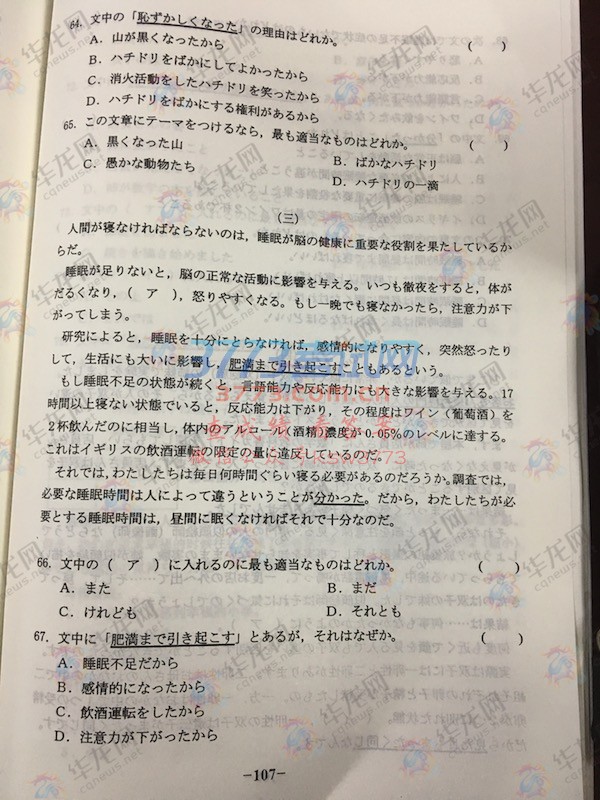 64. 文中の「恥ずかしくなった」の理由はどれか。 ( )
A. 山が黒くなったから
B. ハチドリをばかにしてよかったから
C. 消火活動をしたハチドリを笑ったから
D. ハチドリをばかにする権利があるから
65. この文章にテーマをつけるなら，最も適当なものはどれか。 ( )
A. 黒くなった山 B. ばかなハチドリ
C. 愚かな動物たち D. ハチドリの一滴
(三)
人間が寝なければならないのは，睡眠が脳の健康に重要な役割を果たしているか
らだ。
睡眠が足りないと，脳の正常な活動に影響を与える。いつも徹夜をすると，体が
だるくなり，( ア )，怒りやすくなる。もし一晩でも寝なかったら，注意力が下
がってしまう。
研究によると，睡眠を十分にとらなければ，感情的になりやすく，突然怒ったり
して，生活にも大いに影響し，肥満まで引き起こすこともあるという。
もし睡眠不足の状態が続くと，言語能力や反応能力にも大きな影響を与える。17
時間以上寝ない状態でいると，反応能力は下がり，その程度はワイン（葡萄酒）を
2杯飲んだのに相当し，体内のアルコール（酒精）濃度が0.05%のレベルに達する。
これはイギリスの飲酒運転の限定の量に違反しているのだ。
それでは，わたしたちは毎日何時間ぐらい寝る必要があるのだろうか。調査では，
必要な睡眠時間は人によって違うということが分かった。だから，わたしたちが必
要とする睡眠時間は，昼間に眠くなければそれで十分なのだ。
66. 文中の ( ア ) に入れるのに最も適当なものはどれか。 ( )
A. また B. まだ
C. けれども D. それとも
67. 文中に「肥満まで引き起こす」とあるが，それはなぜか。 ( )
A. 睡眠不足だから
B. 感情的になったから
C. 飲酒運転をしたから
D. 注意力が下がったから
-107-
华龙网
cqnews.net
3773考试网
3773.com.cn